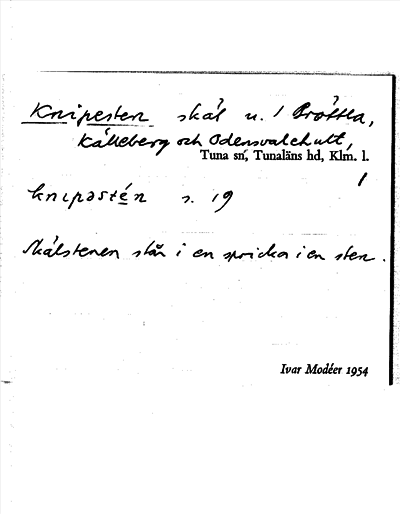 Knipesten skål u. / Pröttla,
Kålleberg och Odensvalehult,
Tuna sn, Tunaläns hd, Klm. l.
1
knɩpəstén s. 19
Skålstenen står i en spricka i en sten.
Ivar Modéer 1954